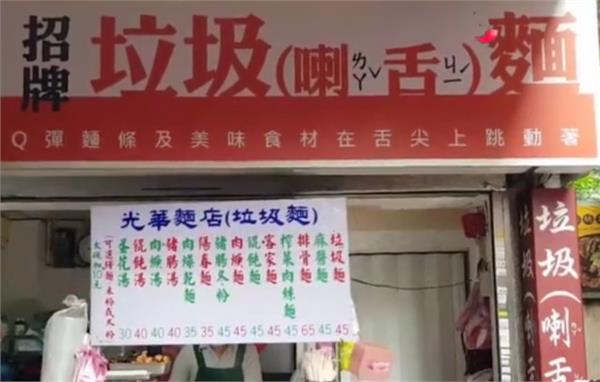 招牌
垃圾(喇ㄌㄚˇ舌ㄐㄧˋ)麵
Q彈麵條及美味食材在舌尖上跳動著
光華麵店(垃圾麵)
垃圾麵 45
麻醬麵 45
排骨麵 65
榨菜肉絲麵 45
客家麵 45
餛飩麵 45
肉焿麵 45
豬腸冬粉 45
陽春麵 35
肉燥乾麵 35
豬腸湯 40
肉焿湯 40
餛飩湯 40
蛋花湯 30
(可選擇麵、米粉或冬粉)
大碗加10元
垃圾(喇舌